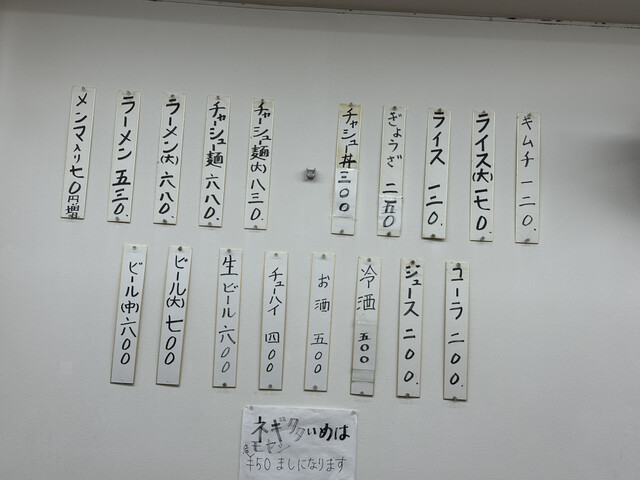 メンマ入り七〇円増
ラーメン 五三〇.
ラーメン(大) 六八〇.
チャーシュー麺 六八〇.
チャーシュー麺(大) 八三〇.
チャーシュー丼 三〇〇
ぎょうざ 二五〇
ライス 一三〇.
ライス(大) 一七〇.
キムチ 一二〇.
ビール(中) 六〇〇
ビール(大) 七〇〇
生ビール 六〇〇
チューハイ 四〇〇
お酒 五〇〇
冷酒 五〇〇
ジュース 二〇〇.
コーラ 二〇〇.
ネギ
いめは
モヤシ
¥50ましになります